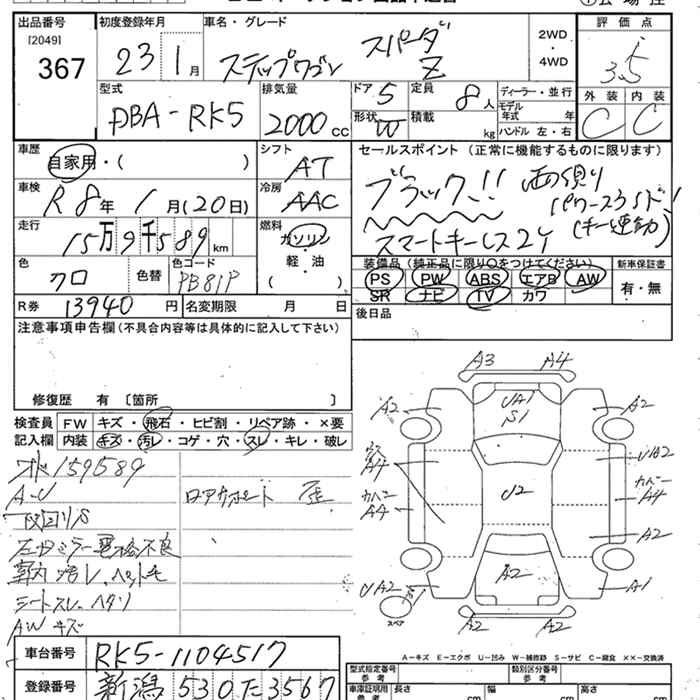 出品番号 初度登録年月 車名・グレード 評価点
[2049]
367
23 1月
ステップワゴン スパーダ Z
2WD・4WD
3.5
型式 排気量 ドア 5 定員 8人 ディーラー・並行 外装 内装
DBA-RK5 2000cc 形状 W 積載 kg モデル年式 年 C C
ハンドル 左・右
車歴 シフト セールスポイント（正常に機能するものに限ります）
自家用・（ ） AT
ブラック!!
車検 冷房
R8年 1月（20日） AAC
両側パワースライド
（キー連動）
スマートキーレス2ケ
走行 燃料
15万9千589km ガソリン・軽・油（ ）
色 クロ 色替 色コード PB81P
装備品（純正品に限り○をつけてください） 新車保証書
PS PW ABS エアB AW 有・無
SR ナビ TV カワ
R券 13940円 名変期限 月 日 後日品
注意事項申告欄（不具合内容等は具体的に記入して下さい）
修復歴 有〔箇所 〕
検査員 FW キズ・飛石・ヒビ割・リペア跡・×要
記入欄 内装 キズ・汚レ・コゲ・穴・スレ・キレ・破レ
159589
A-U
左ドアミラー電格不良
シートスレ、ヘタリ
AWキズ
A3 A4
A2 UA1 S1 A2
A4 UB2
カバーA4 U2 カバーA4
A2
UA2 A2 A1
スペア
A2 A2
A-キズ E-エクボ U-凹み W-補修跡 S-サビ C-腐食 ××-交換済
車台番号 RK5-1104517
登録番号 新潟 530 た 3567
型式指定番号 参考 類別区分番号 参考
車庫証明用 参考 長さ cm 幅 cm 高さ cm